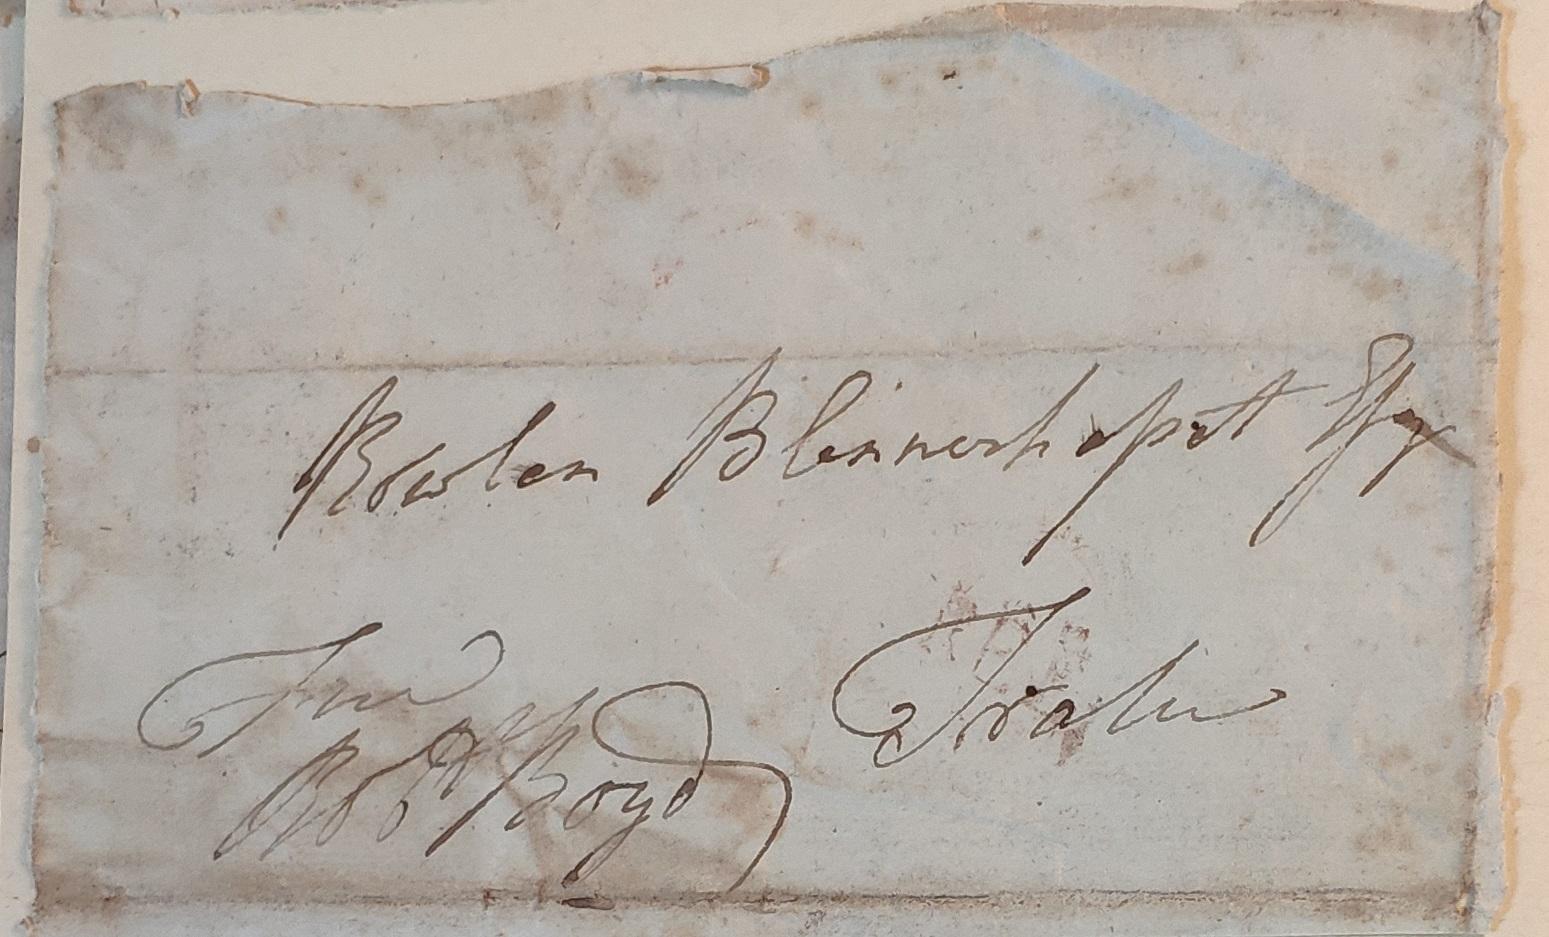 Rowlen Blennerhassett Esqr
Tralee
Free
Robt Boyd